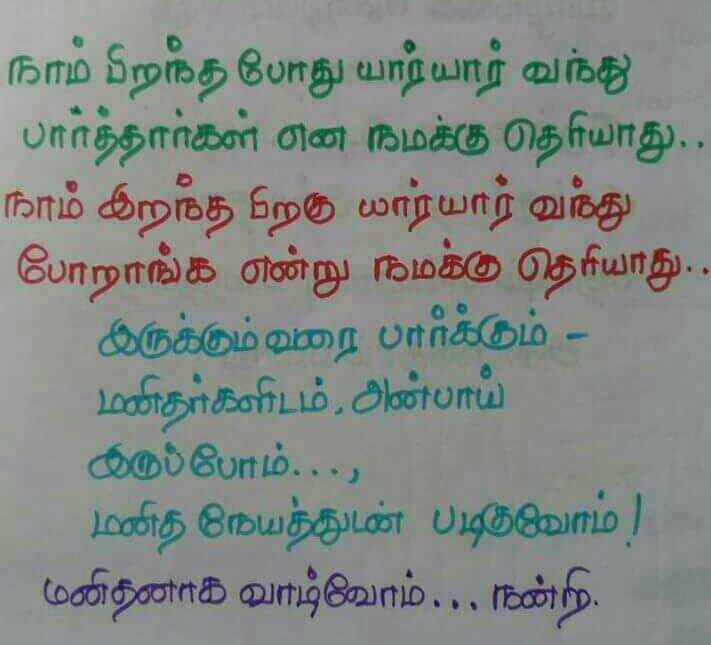 நாம் பிறந்த போது யார்யார் வந்து
பார்த்தார்கள் என நமக்கு தெரியாது..
நாம் இறந்த பிறகு யார்யார் வந்து
போறாங்க என்று நமக்கு தெரியாது..
இருக்கும்வரை பார்க்கும் -
மனிதர்களிடம், அன்பாய்
இருப்போம்...,
மனித நேயத்துடன் படிகுவோம்!
மனிதனாக வாழ்வோம்... நன்றி.